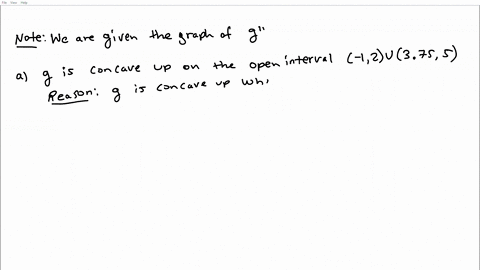 Note: We are given the graph of g"
a) g is concave up on the open interval (-1,2)∪(3.75,5)
Reason: g is concave up wh